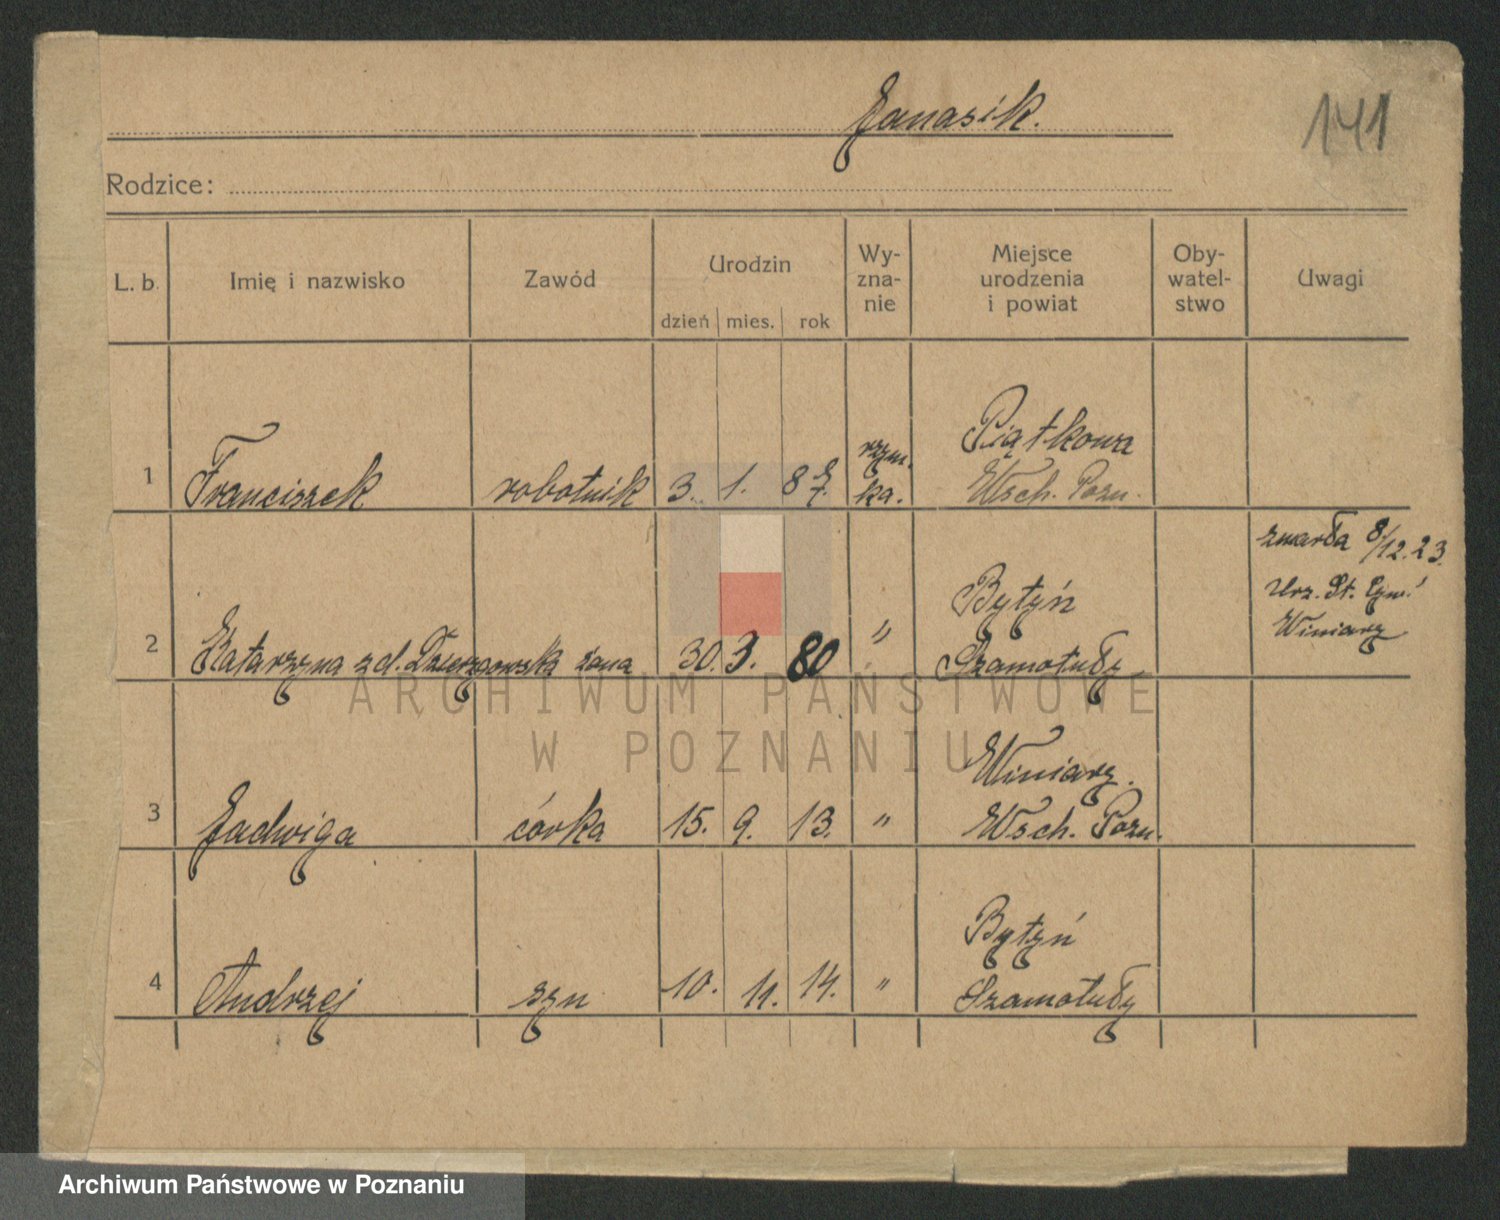 Janasik.
141
Rodzice:
L. b. Imię i nazwisko Zawód Urodzin dzień mies. rok Wy-zna-nie Miejsce urodzenia i powiat Oby-watel-stwo Uwagi
1 Franciszek robotnik 3. 1. 87. rzym. ka. Piątkowa
Wsch. Pozn.
2 Katarzyna zd. Dzierzgowska żona 30. 3. 80 " Bytyń
Szamotuły
zmarła 8/12.23.
Urz. St. Cyw.
Winiary
3 Jadwiga córka 15. 9. 13. " Winiary.
Wsch. Pozn.
4 Andrzej syn 10. 11. 14. " Bytyń
Szamotuły
ARCHIWUM PAŃSTWOWE
W POZNANIU
Archiwum Państwowe w Poznaniu